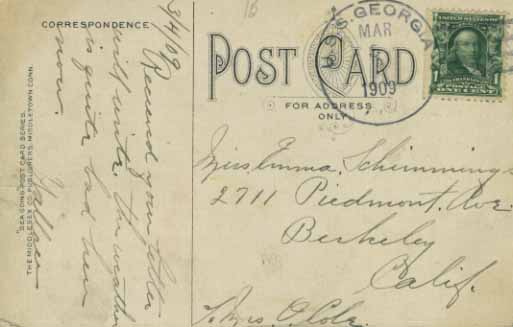 CORRESPONDENCE
3/4/09
Received your letter
will write. the weather
is quite bad here
now.
"SEA GOING POST CARD SERIES.
THE MIDDLESEX CO. PUBLISHERS, MIDDLETOWN CONN.
U.S.S. GEORGIA
MAR
1909
POST CARD
FOR ADDRESS
ONLY.
UNITED STATES
1 1
ONE CENT
Miss. Emma. Schimmings
2711 Piedmont. Ave.
Berkeley
Calif.
Mrs. O. Cole.